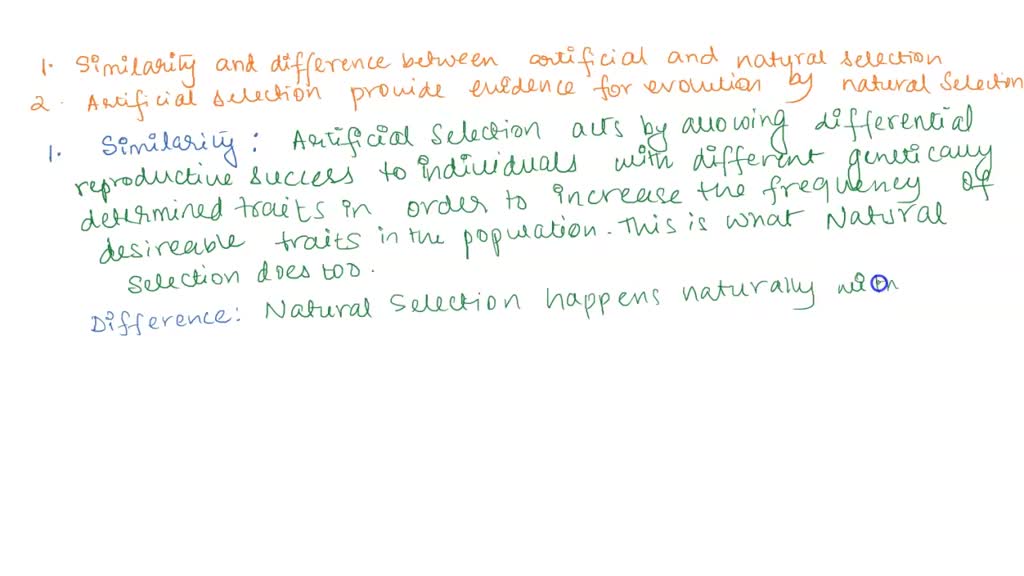 1. Similarity and difference between artificial and natural selection
2. Artificial selection provide evidence for evolution by natural selection
1. Similarity: Artificial Selection acts by allowing differential
reproductive success to individuals with different genetically
determined traits in order to increase the frequency of
desireable traits in the population. This is what Natural
Selection does too.
Difference: Natural Selection happens naturally